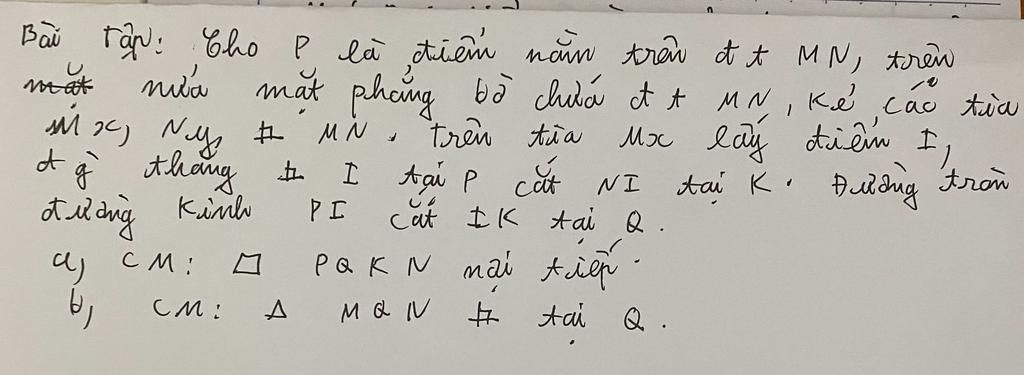 Bài tập: Cho P là điểm nằm trên đ t MN, trên
mặt nửa mặt phẳng bờ chứa đ t MN, kẻ các tia
Mx, Ny ⊥ MN. Trên tia Mx lấy điểm I,
đ g thẳng ⊥ I tại P cắt NI tại K. Đường tròn
đường kính PI cắt IK tại Q.
a, CM: □ PQKN nội tiếp.
b, CM: Δ MQN ⊥ tại Q.